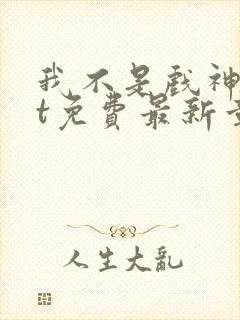 我不是戏神
t免费最新
人生大亂